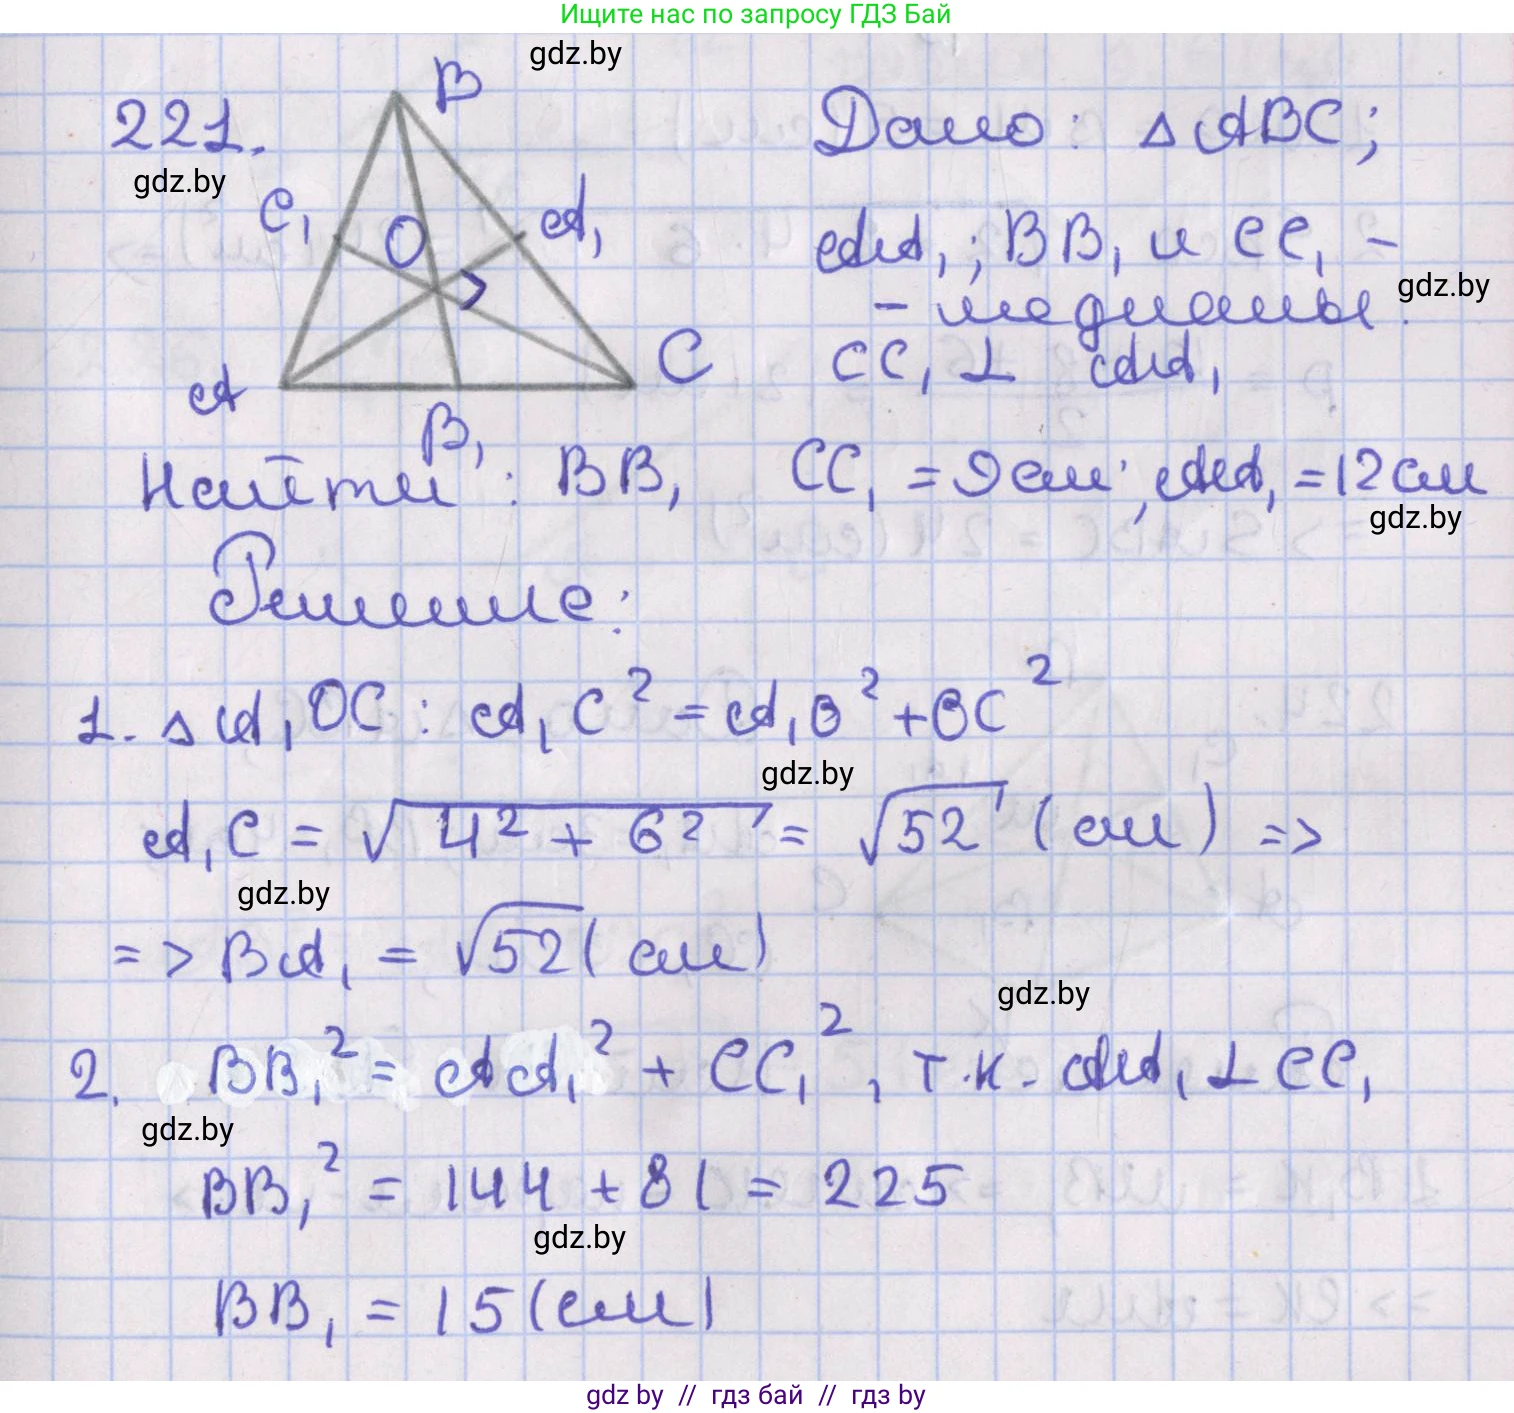 Ищите нас по запросу ГДЗ Бай
gdz.by
B
221.
Дано: △ ABC;
gdz.by
C₁
O
A₁
AA₁; BB₁ и CC₁ -
gdz.by
- медианы.
A
C
CC₁ ⊥ AA₁
B₁
Найти: BB₁ CC₁ = 9 см; AA₁ = 12 см
gdz.by
Решение:
1. △ A₁OC: A₁C² = A₁O² + OC²
gdz.by
A₁C = √4² + 6² = √52 (см) =>
gdz.by
=> BA₁ = √52 (см)
gdz.by
2. BB₁² = AA₁² + CC₁², т.к. AA₁ ⊥ CC₁
gdz.by
BB₁² = 144 + 81 = 225
gdz.by
BB₁ = 15 (см)
gdz by // гдз бай // гдз by